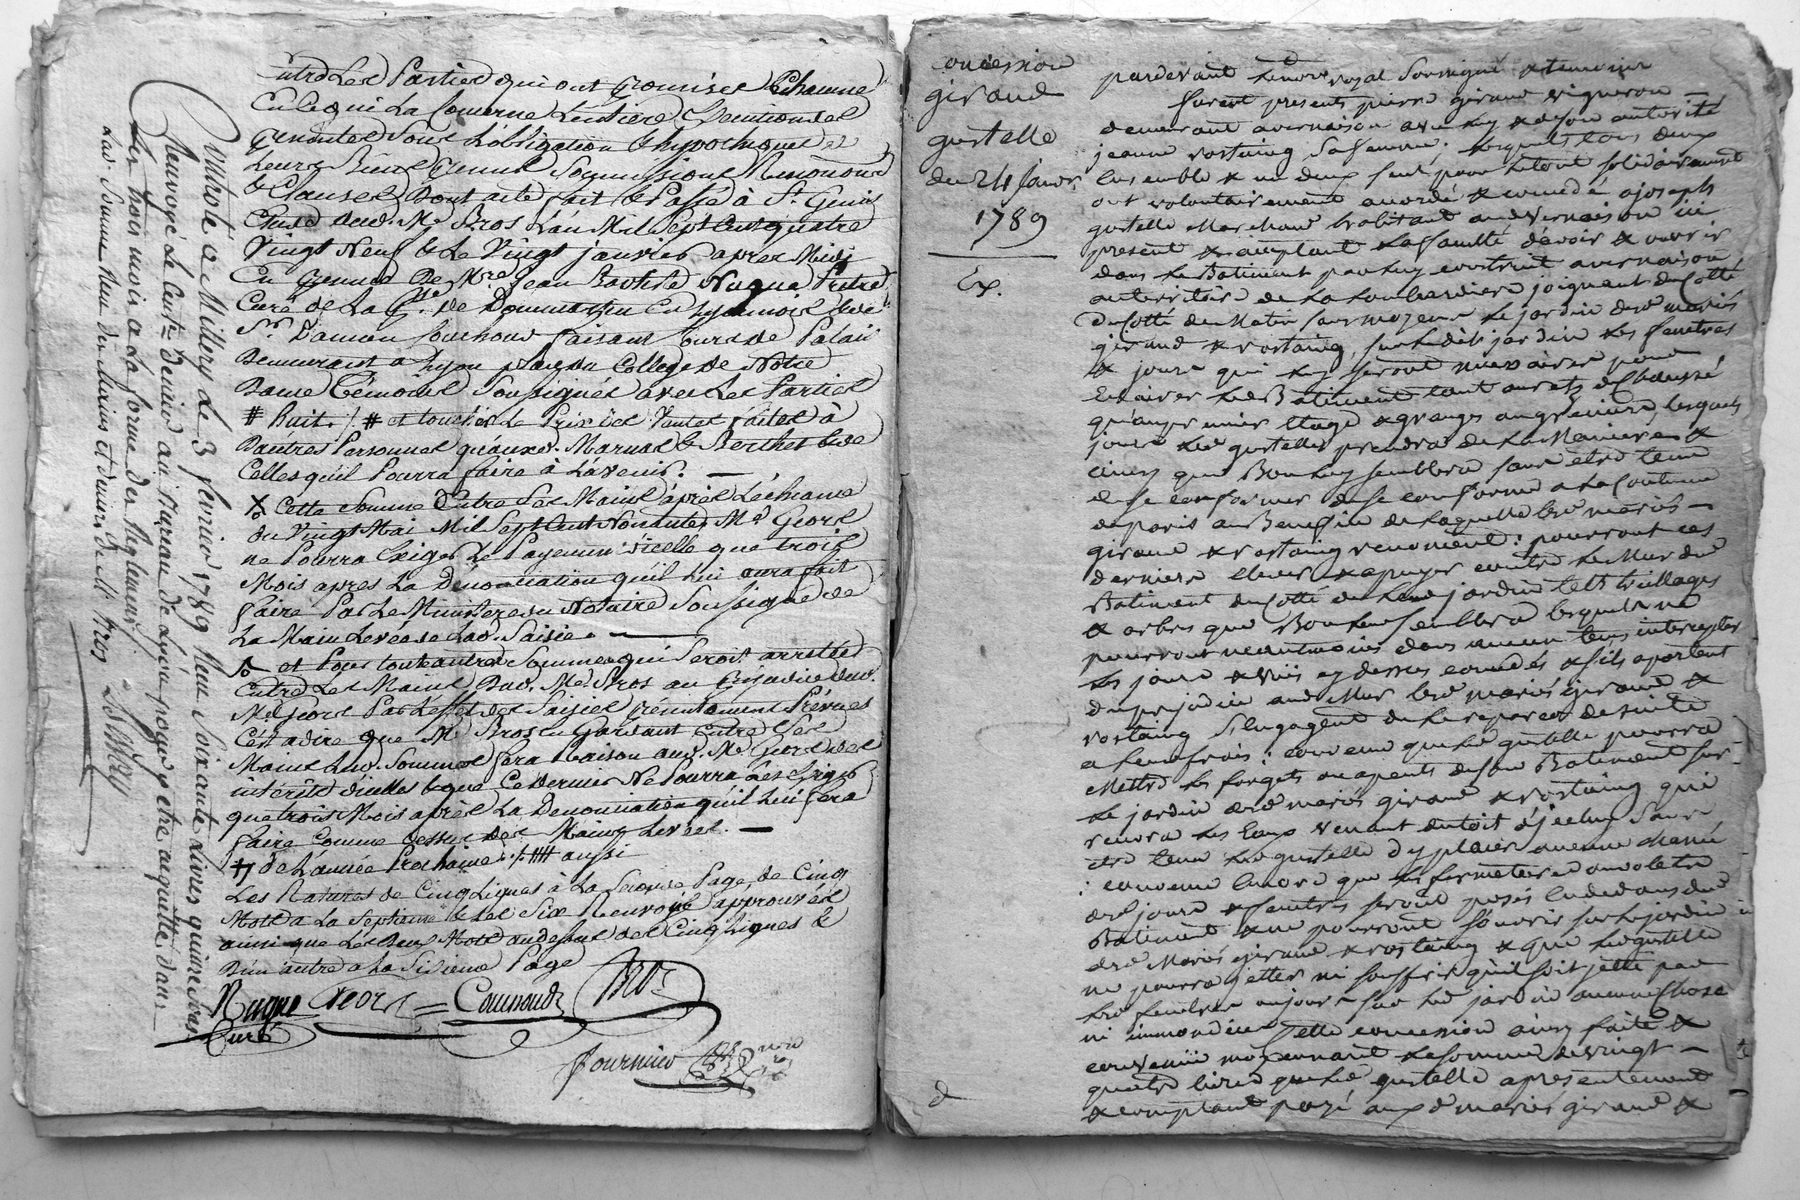 entre Les Parties qui ont Promises Chacune
En ce qui La Concerne L'entiere Execution des
Presentes Sous L'obligation & hypotheques
Leurs Biens Soumissions Renonons
& Clauses Dont acte fait & Passé à St. Genis
L'an Mil Sept Cent quatre
Vingt Neuf & Le Vingt janvier après Midi
En Presence De Mre. Jean Baptiste Nugue Prêtre
Curé de La Psse. de Dommartin En Lyonnois &
Sr. faisant Cour de Palais
Demeurant à Lyon College de Notre
Dame Témoins Soussignés avec Les Parties
# huit. / # et toucher Le Prix des Ventes faites à
D'autres Personnes qu'auxd. Marnas & Berthet & de
Celles qu'il Pourra faire à L'avenir. —
Cette Somme Entre Ses Mains après L'échéance
du Vingt Mai Mil Sept Cent Nonante, Md. Geors
ne Pourra Exiger Le Payement d'icelle que trois
Mois apres La Denonciation qu'il Lui aura fait
faire Par Le Ministere du Notaire Soussigné de
La Main Levée de Lad. Saisie. —
et Pour toute autre Somme qui Seroit arrêtée
Entre Les Mains Dud. Me. Bros au Prejudice dud.
Me. Geors Par L'effet des Saisies Présentement Prévues
C'est à dire que Me. Bros En Gardant Entre Ses
Mains Lesd. Sommes fera Raison aud. Me. Geors des
intérêts d'icelles & que Ce dernier Ne Pourra Les Exiger
que trois Mois après La Denonciation qu'il Lui fera
faire Comme dessus des Mains Levées. —
de L'année Prochaine ./. aussi
Les Ratures de Cinq Lignes à La Seconde Page, de Cinq
Mots à La Septieme & Les Six Renvois approuvés
ainsi que Les Deux Mots audessus des Cinq Lignes &
D'un autre à La Sixieme Page
Nugue Geors Bros
Curé
Fournier
Controlé à Millery Le 3 fevrier 1789 Reçu Soixante Livres quinze sols
Renvoyé Le Centie Denier au Bureau de Lyon pour y etre acquitté dans
Les trois mois à La forme des Reglements.
Lad. Somme Reçu des Mains et deniers de Me. Bros
concession
giraud
gustelle
du 24 janv.
1789
Ex.
pardevant Le Nore royal Soussigné & temoins
furent presents pierre giraud vigneron
demeurant a vernaison avec luy & de son autorité
jeanne rostaing Sa femme. Lesquels tous deux
Ensemble & un deux seul pour Le tout solidairement
ont volontairement accordé & concedé a joseph
gustelle Marchand habitant aud. vernaison ici
present & acceptant La faculté d'avoir & ouvrir
dans Le Batiment par luy construit a vernaison
au territoire de La Lombardiere joignant du Cotté
du Cotté du Matin Le jardin desd. mariés
giraud & rostaing, sur Led. jardin Les fenetres
& jours qui luy seront necessaires pour
Eclairer Led. Batiment tant au rets de chaussé
qu'au premier Etage & granges ou greniers Lesquels
jours Led. gustelle prendra de La Maniere &
ainsy que Bon luy semblera sans etre tenu
de se conformer a La Coutume
de paris au Benefice de Laquelle Lesd. mariés
giraud & rostaing renoncent : pourront ces
derniers Elever & apuyer contre Le Mur dud.
Batiment du Cotté de Leur jardin tels treillages
& arbres que Bon Leur semblera Lesquels ne
pourront neantmoins dans aucun tems intercepter
Les jours & vües cy dessus concedés & s'ils aportent
du prejudice aud. Mur Lesd. mariés giraud &
rostaing s'engagent de Le reparer de suite
a Leurs frais : convenu que Led. gustelle pourra
Mettre Les forgets ou apents de son Batiment sur
Le jardin desd. mariés giraud & rostaing qui
recevra Les Eaux venant du toit d'jcelluy sans
etre tenu Led. gustelle d'y placer aucune chanée
: convenu Encore que Les fermetures ou volets
desd. jours & fenetres seront posés En dedans dud.
Batiment & ne pourront s'ouvrir sur Le jardin
desd. Mariés giraud & rostaing & que Led. gustelle
ne pourra jetter ni souffrir qu'il soit jetté par
Lesd. fenetres ou jours sur Led. jardin aucune chose
ni immondices Cette concession ainsy faite &
convenüe moyennant La somme de vingt
quatre livres que Led. gustelle a presentement
& comptant payé auxd. mariés giraud &